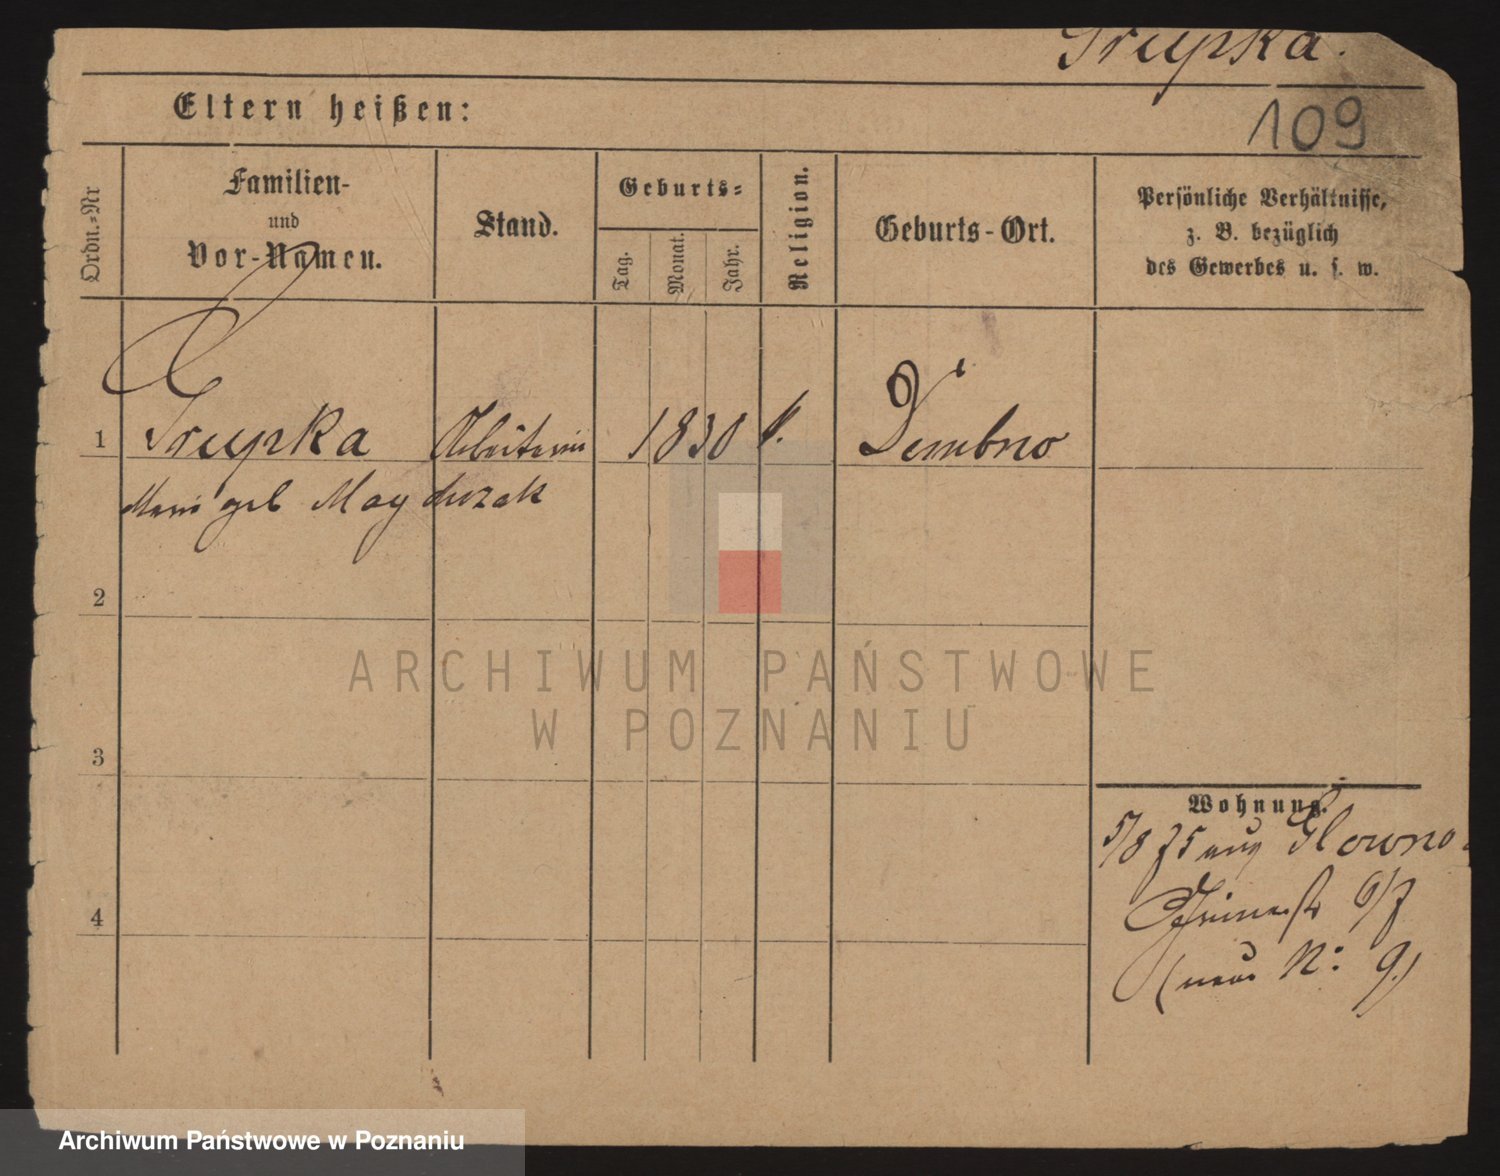 Trupka.
109
Eltern heißen:
Ordn.-Nr
Familien-
und
Vor-Namen.
Stand.
Geburts-
Tag.
Monat.
Jahr.
Religion.
Geburts-Ort.
Persönliche Verhältnisse,
z. B. bezüglich
des Gewerbes u. s. w.
1
Trupka
Arbeiterin
1830
k.
Dembno
geb
2
ARCHIWUM PAŃSTWOWE
W POZNANIU
3
Wohnung.
5/8 75 aus Glowno
4
6/7
(neue No: 9.)
Archiwum Państwowe w Poznaniu